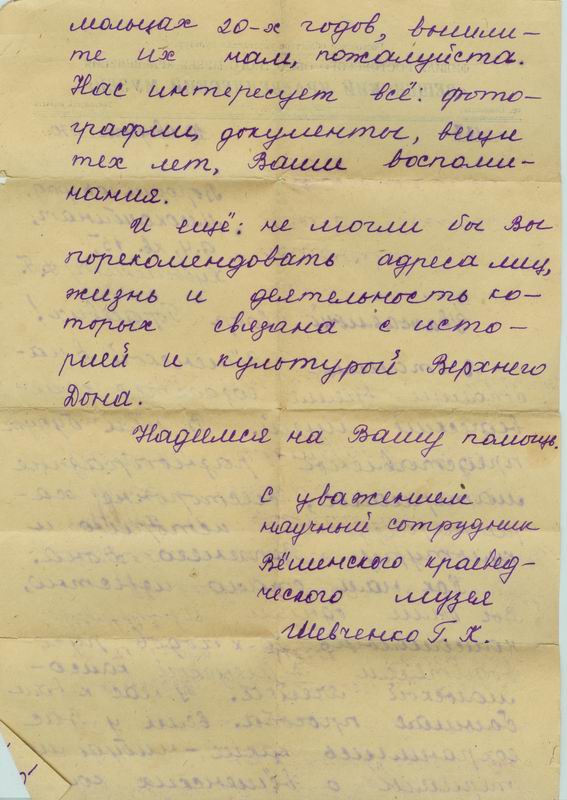 мольцах 20-х годов, вышли-
те их нам, пожалуйста.
Нас интересует всё: фото-
графии, документы, вещи
тех лет, Ваши воспоми-
нания.
И ещё: не могли бы Вы
порекомендовать адреса лиц,
жизнь и деятельность ко-
торых связана с исто-
рией и культурой Верхнего
Дона.
Надеемся на Вашу помощь.
С уважением
научный сотрудник
Вёшенского краевед-
ческого музея
Шевченко Г. К.